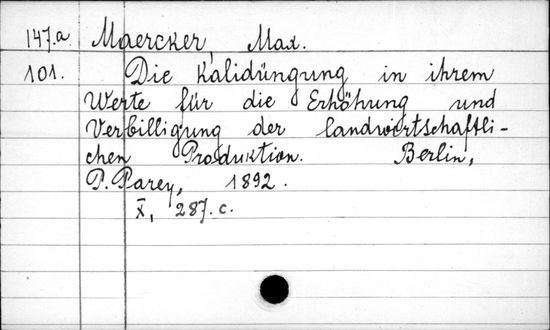 147.a Maercker, Max.
101. Die Kalidüngung in ihrem
Werte für die Erhöhung und
Verbilligung der landwirtschaftli-
chen Produktion. Berlin,
P. Parey, 1892.
X, 287. c.